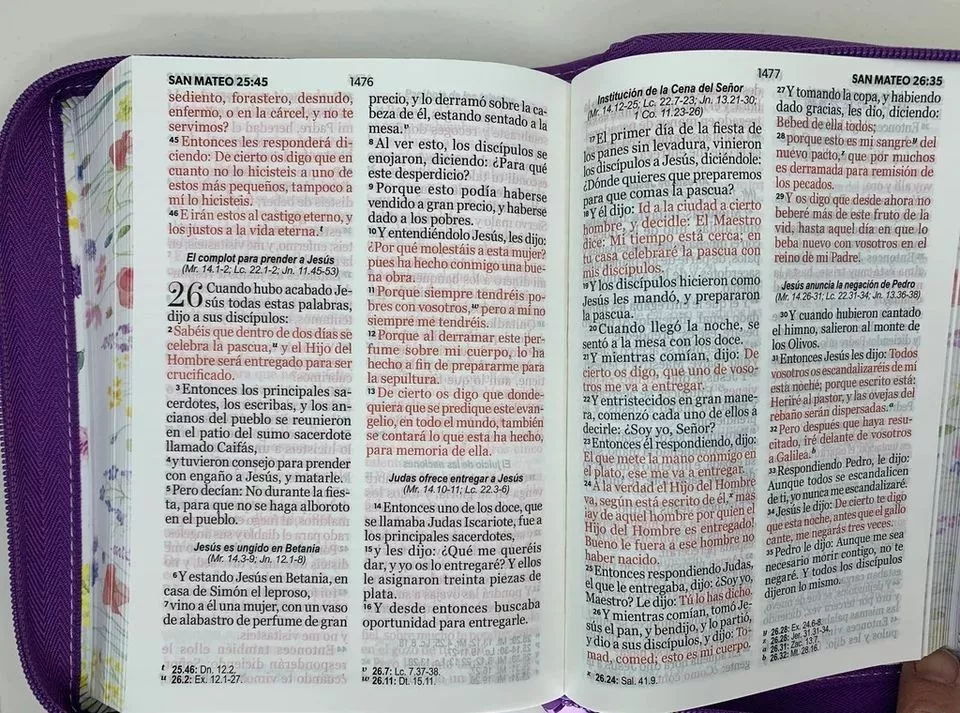 SAN MATEO 25:45
1476
sediento, forastero, desnudo,
enfermo, o en la cárcel, y no te
servimos?
45 Entonces les responderá di-
ciendo: De cierto os digo que en
cuanto no lo hicisteis a uno de
estos más pequeños, tampoco a
mí lo hicisteis.
46 E irán estos al castigo eterno, y
los justos a la vida eterna.t
El complot para prender a Jesús
(Mr. 14.1-2; Lc. 22.1-2; Jn. 11.45-53)
26 Cuando hubo acabado Je-
sús todas estas palabras,
dijo a sus discípulos:
2 Sabéis que dentro de dos días se
celebra la pascua,u y el Hijo del
Hombre será entregado para ser
crucificado.
3 Entonces los principales sa-
cerdotes, los escribas, y los an-
cianos del pueblo se reunieron
en el patio del sumo sacerdote
llamado Caifás,
4 y tuvieron consejo para prender
con engaño a Jesús, y matarle.
5 Pero decían: No durante la fies-
ta, para que no se haga alboroto
en el pueblo.
Jesús es ungido en Betania
(Mr. 14.3-9; Jn. 12.1-8)
6 Y estando Jesús en Betania, en
casa de Simón el leproso,
7 vino a él una mujer, con un vaso
de alabastro de perfume de gran
t 25.46: Dn. 12.2.
u 26.2: Ex. 12.1-27.
precio, y lo derramó sobre la ca-
beza de él, estando sentado a la
mesa.
8 Al ver esto, los discípulos se
enojaron, diciendo: ¿Para qué
este desperdicio?
9 Porque esto podía haberse
vendido a gran precio, y haberse
dado a los pobres.
10 Y entendiéndolo Jesús, les dijo:
¿Por qué molestáis a esta mujer?
pues ha hecho conmigo una bue-
na obra.
11 Porque siempre tendréis po-
bres con vosotros,w pero a mí no
siempre me tendréis.
12 Porque al derramar este per-
fume sobre mi cuerpo, lo ha
hecho a fin de prepararme para
la sepultura.
13 De cierto os digo que donde-
quiera que se predique este evan-
gelio, en todo el mundo, también
se contará lo que esta ha hecho,
para memoria de ella.
Judas ofrece entregar a Jesús
(Mr. 14.10-11; Lc. 22.3-6)
14 Entonces uno de los doce, que
se llamaba Judas Iscariote, fue a
los principales sacerdotes,
15 y les dijo: ¿Qué me queréis
dar, y yo os lo entregaré? Y ellos
le asignaron treinta piezas de
plata.
16 Y desde entonces buscaba
oportunidad para entregarle.
v 26.7: Lc. 7.37-38.
w 26.11: Dt. 15.11.
1477
SAN MATEO 26:35
Institución de la Cena del Señor
(Mr. 14.12-25; Lc. 22.7-23; Jn. 13.21-30;
1 Co. 11.23-26)
17 El primer día de la fiesta de
los panes sin levadura, vinieron
los discípulos a Jesús, diciéndole:
¿Dónde quieres que preparemos
para que comas la pascua?
18 Y él dijo: Id a la ciudad a cierto
hombre, y decidle: El Maestro
dice: Mi tiempo está cerca; en
tu casa celebraré la pascua con
mis discípulos.
19 Y los discípulos hicieron como
Jesús les mandó, y prepararon
la pascua.
20 Cuando llegó la noche, se
sentó a la mesa con los doce.
21 Y mientras comían, dijo: De
cierto os digo, que uno de voso-
tros me va a entregar.
22 Y entristecidos en gran mane-
ra, comenzó cada uno de ellos a
decirle: ¿Soy yo, Señor?
23 Entonces él respondiendo, dijo:
El que mete la mano conmigo en
el plato, ese me va a entregar.
24 A la verdad el Hijo del Hombre
va, según está escrito de él,x mas
¡ay de aquel hombre por quien el
Hijo del Hombre es entregado!
Bueno le fuera a ese hombre no
haber nacido.
25 Entonces respondiendo Judas,
el que le entregaba, dijo: ¿Soy yo,
Maestro? Le dijo: Tú lo has dicho.
26 Y mientras comían, tomó Je-
sús el pan, y bendijo, y lo partió,
y dio a sus discípulos, y dijo: To-
mad, comed; esto es mi cuerpo.
x 26.24: Sal. 41.9.
27 Y tomando la copa, y habiendo
dado gracias, les dio, diciendo:
Bebed de ella todos;
28 porque esto es mi sangrey del
nuevo pacto,z que por muchos
es derramada para remisión de
los pecados.
29 Y os digo que desde ahora no
beberé más de este fruto de la
vid, hasta aquel día en que lo
beba nuevo con vosotros en el
reino de mi Padre.
Jesús anuncia la negación de Pedro
(Mr. 14.26-31; Lc. 22.31-34; Jn. 13.36-38)
30 Y cuando hubieron cantado
el himno, salieron al monte de
los Olivos.
31 Entonces Jesús les dijo: Todos
vosotros os escandalizaréis de mí
esta noche; porque escrito está:
Heriré al pastor, y las ovejas del
rebaño serán dispersadas.a
32 Pero después que haya resu-
citado, iré delante de vosotros
a Galilea.b
33 Respondiendo Pedro, le dijo:
Aunque todos se escandalicen
de ti, yo nunca me escandalizaré.
34 Jesús le dijo: De cierto te digo
que esta noche, antes que el gallo
cante, me negarás tres veces.
35 Pedro le dijo: Aunque me sea
necesario morir contigo, no te
negaré. Y todos los discípulos
dijeron lo mismo.
y 26.28: Ex. 24.6-8.
z 26.28: Jer. 31.31-34.
a 26.31: Zac. 13.7.
b 26.32: Mt. 28.16.